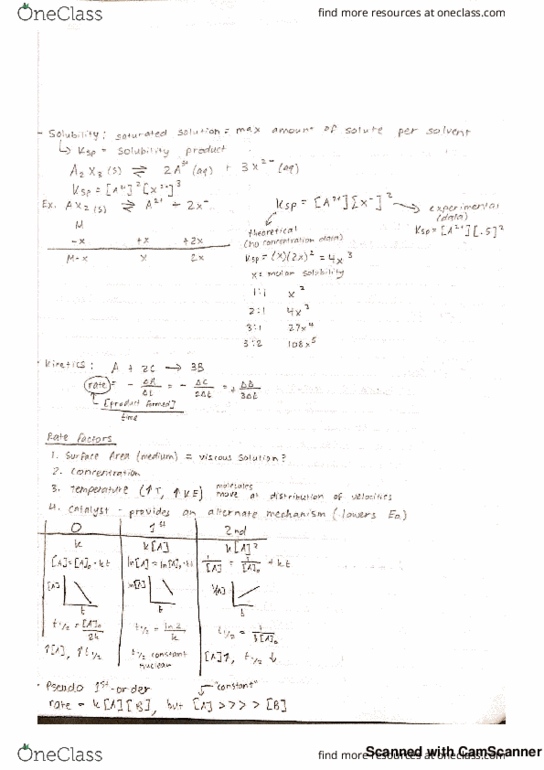 OneClass
find more resources at oneclass.com
- Solubility: saturated solution = max amount of solute per solvent
↳ Ksp = solubility product
A₂X₃(s) ⇌ 2A³⁺(aq) + 3X²⁻(aq)
Ksp = [A³⁺]²[X²⁻]³
Ex. AX₂(s) ⇌ A²⁺ + 2x⁻
Ksp = [A²⁺][x⁻]²
experimental
(data)
Ksp = [A²⁺][.5]²
M
-x +x +2x
M-x x 2x
theoretical
(no concentration data)
Ksp = (x)(2x)² = 4x³
x = molar solubility
1:1 x²
2:1 4x³
3:1 27x⁴
3:2 108x⁵
· Kinetics: A + 2C → 3B
rate = - ΔA/Δt = - ΔC/2Δt = + ΔB/3Δt
[product formed]/time
Rate Factors
1. Surface Area (medium) = viscous solution?
2. Concentration
3. Temperature (↑T, ↑KE) molecules move at distribution of velocities
4. Catalyst - provides an alternate mechanism (lowers Ea)
0 1st 2nd
k k[A] k[A]²
[A]=[A]₀-kt ln[A]=ln[A]₀-kt 1/[A] = 1/[A]₀ + kt
[A] ln[A] 1/[A]
t t t
t½ = [A]₀/2k t½ = ln2/k t½ =
↑[A], ↑t½ t½ constant [A]↑, t½ ↓
nuclear
· Pseudo 1st-order "constant"
rate = k[A][B], but [A] >>> [B]
Scanned with CamScanner
OneClass
find more resources at oneclass.com